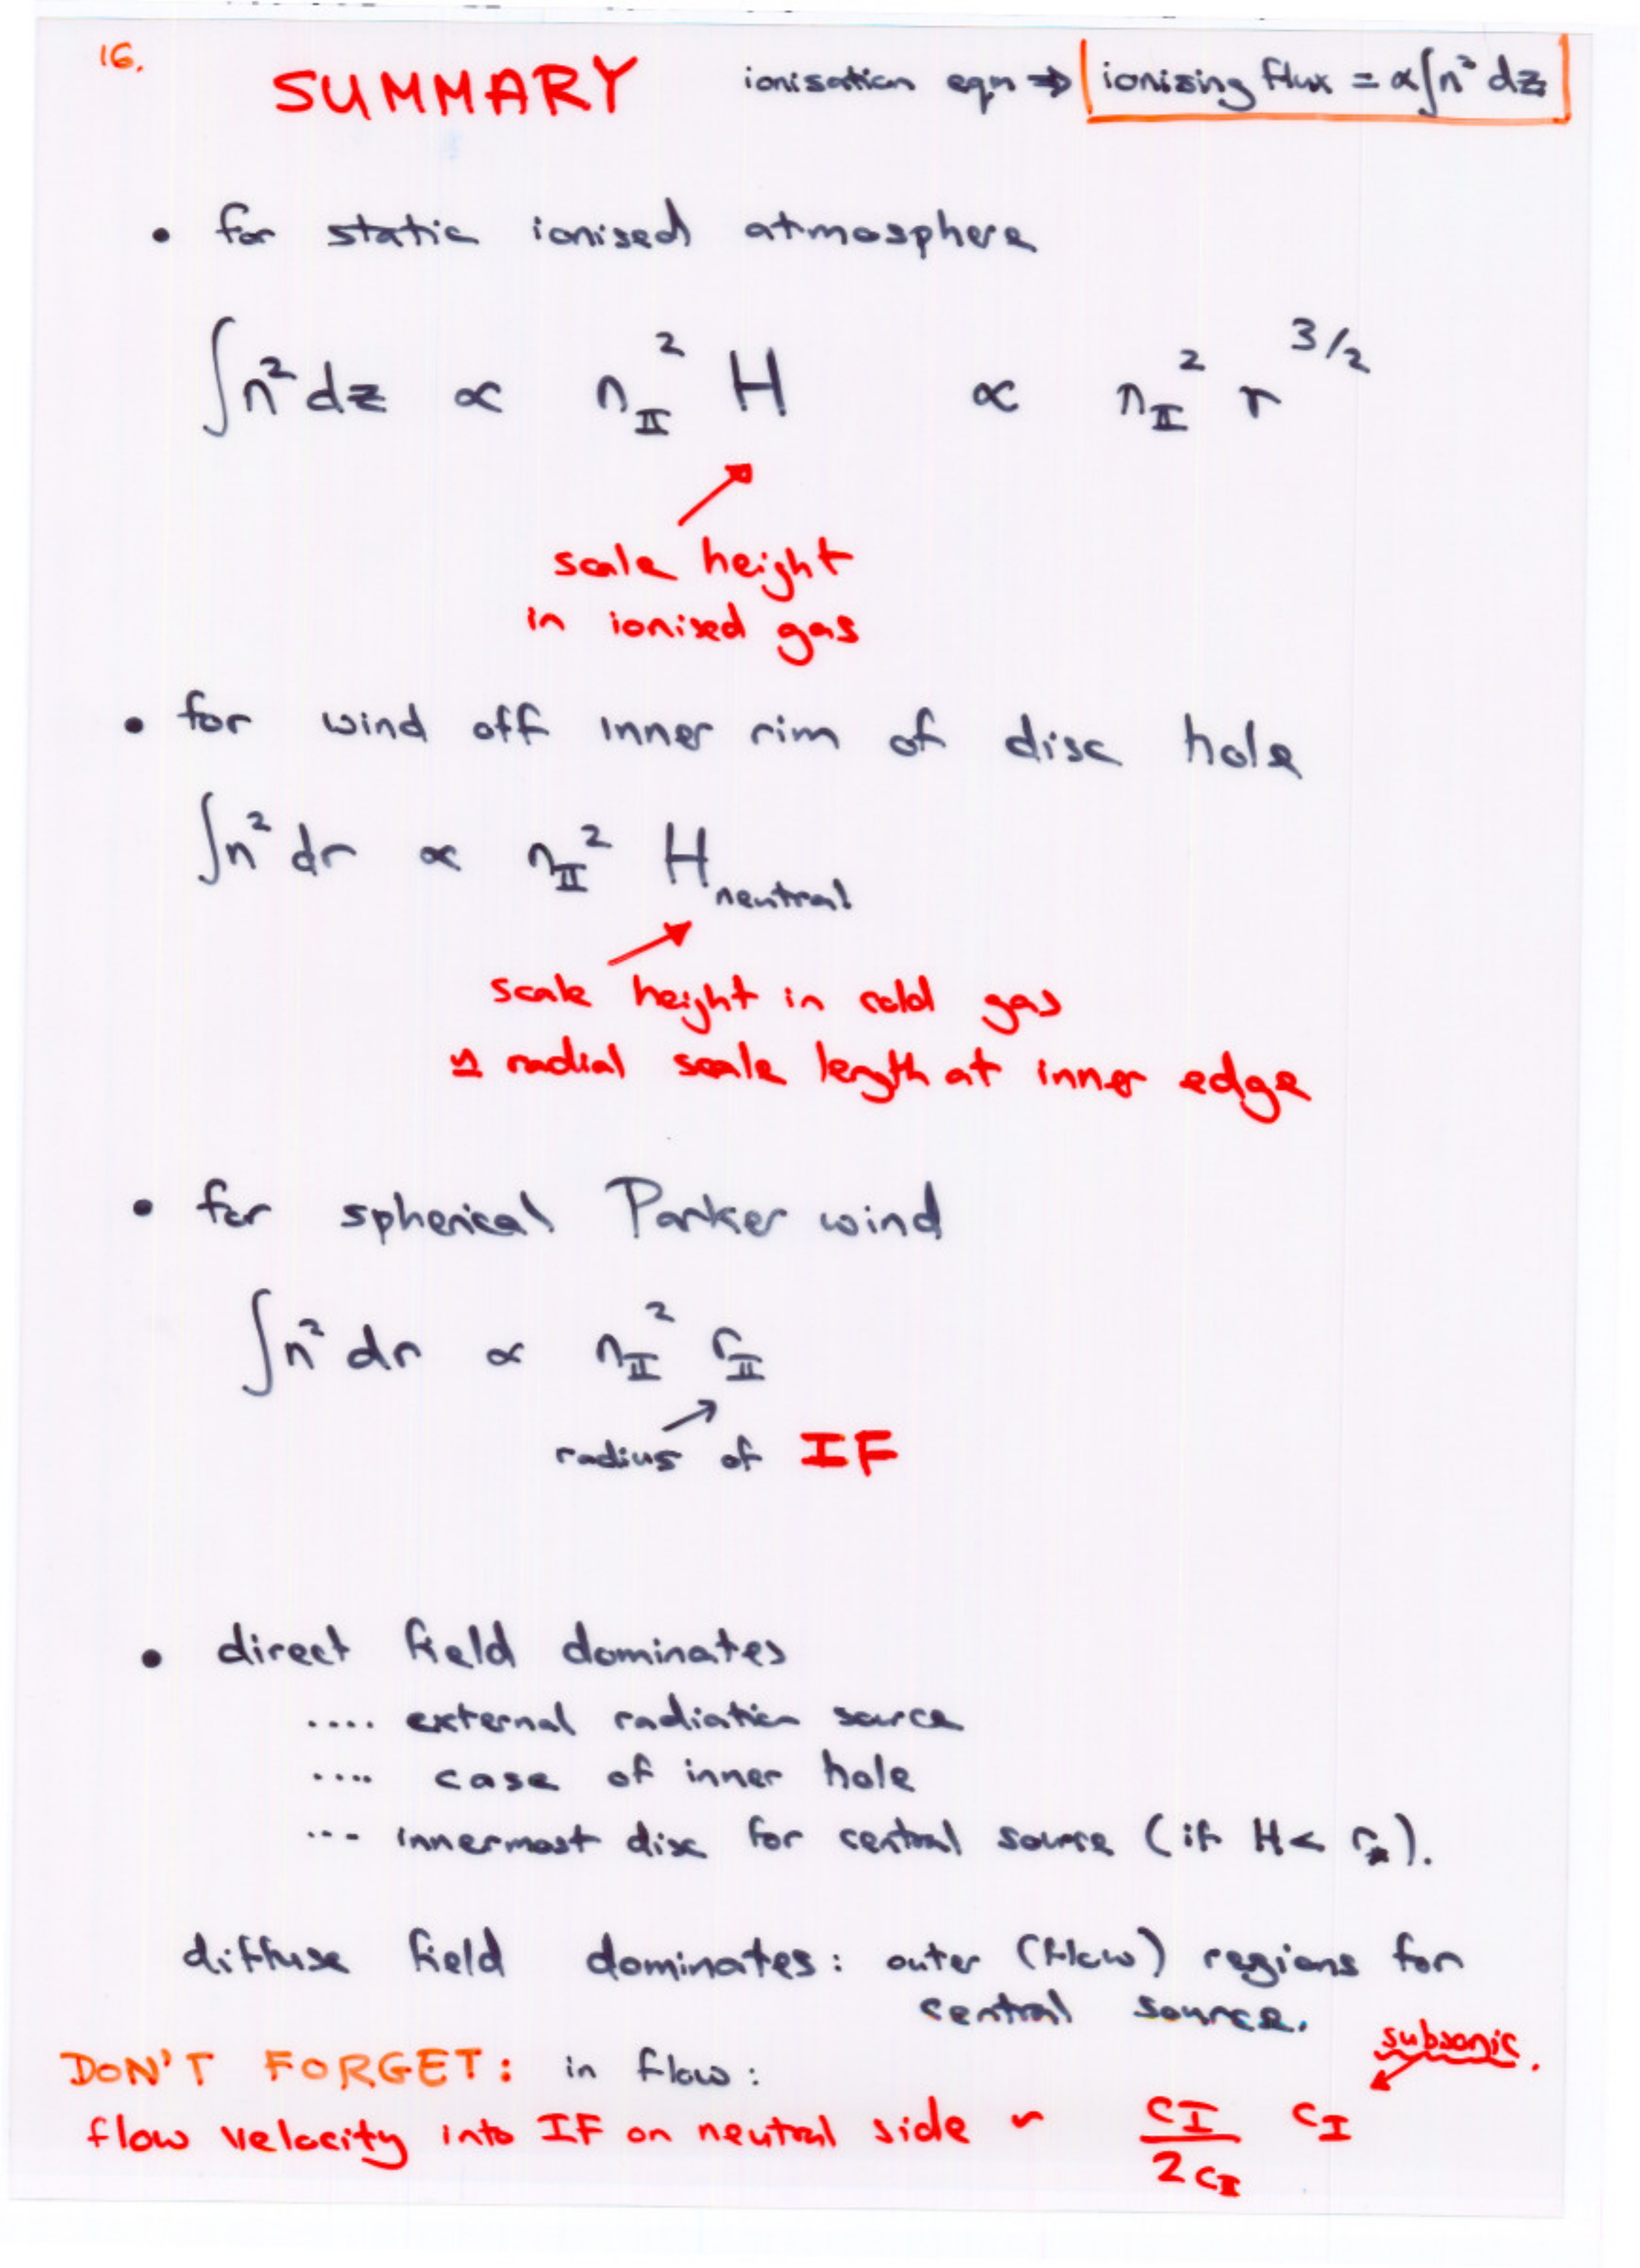 16.
SUMMARY ionisation eqn ⇒ ionizing flux = α∫n² dz
• for static ionised atmosphere
∫n² dz ∝ n_II² H ∝ n_II² r^3/2
scale height
in ionised gas
• for wind off inner rim of disc hole
∫n² dr ∝ n_II² H_neutral
scale height in cold gas
≃ radial scale length at inner edge
• for spherical Parker wind
∫n² dr ∝ n_II² r_II
radius of IF
• direct field dominates
.... external radiation source
.... case of inner hole
... innermost disc for central source (if H < r_*).
diffuse field dominates: outer (flow) regions for
central source.
subsonic.
DON'T FORGET: in flow:
flow velocity into IF on neutral side ~ c_I / 2c_II c_I